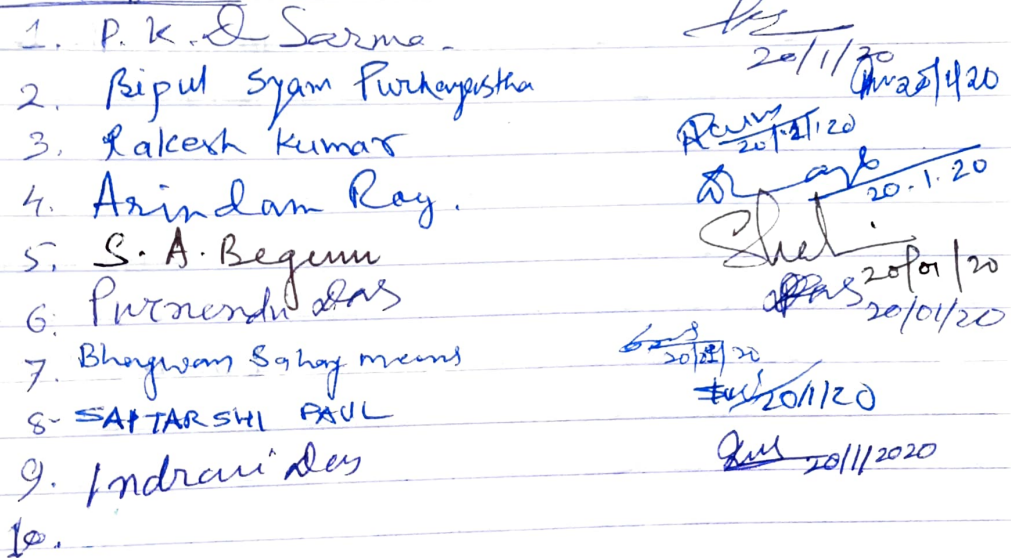 1. P. K. D Sarma. 20/1/20
2. Bipul Syam Purkayastha 20/1/20
3. Rakesh Kumar 20/1/20
4. Arindam Roy. 20.1.20
5. S. A. Begum 20/01/20
6. Purnendu Das 20/01/20
7. Bhagwan Sahay meena 20/01/20
8- SAPTARSHI PAUL 20/1/20
9. Indrani Das 20/1/2020
10.